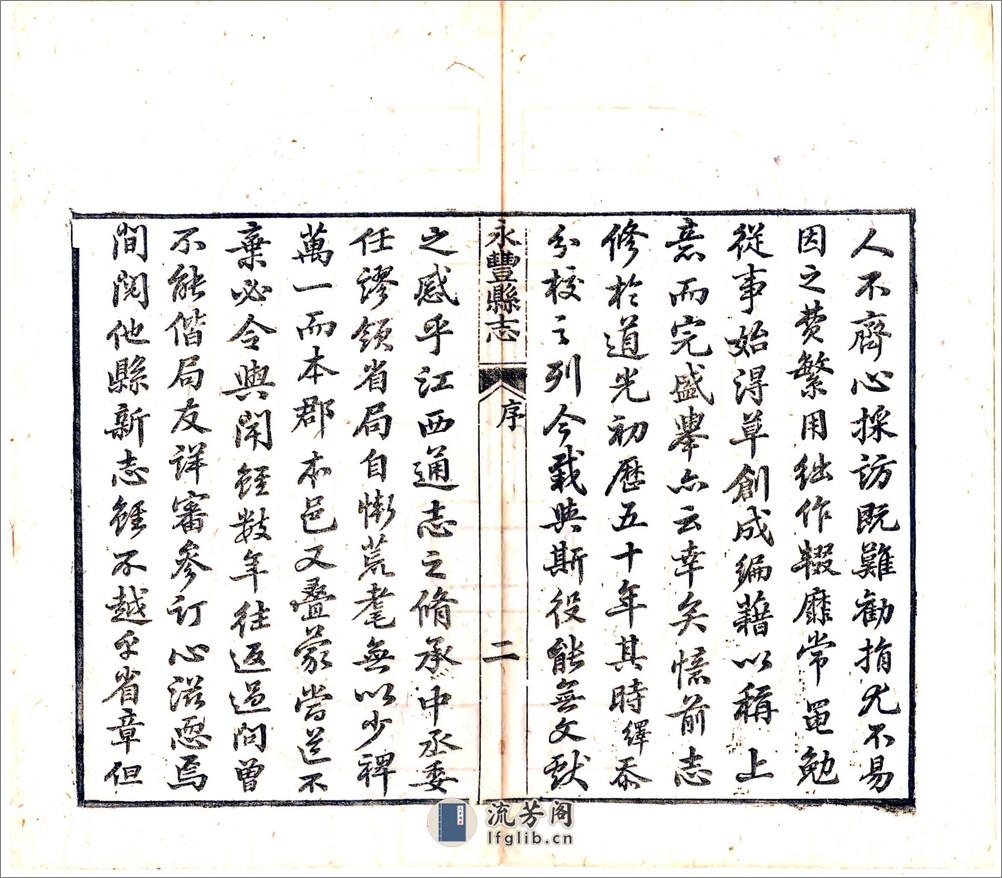 人不齊心採訪既難勸捐尤不易
因之費繁用絀作輟靡常黽勉
從事始得草創成編藉以稱上
意而完盛舉亦云幸矣愫前志
修於道光初歷五十年其時繹忝
分校之列今載與斯役能無文獻
永豐縣志
序
二
之感乎江西通志之脩承中丞委
任謬領省局自慚荒耄無以少裨
萬一而本郡本邑又疊蒙當道不
棄必令與聞經數年往返過問曾
不能偕局友詳審參訂心滋恧焉
間閱他縣新志雖不越乎省章但
流芳阁
lfglib.cn